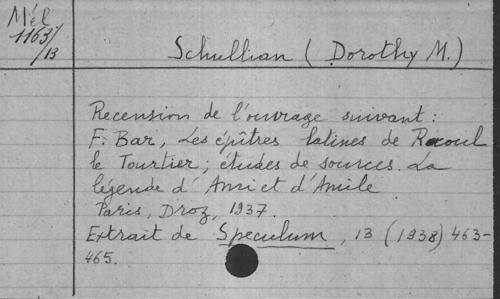 Mél
1163/
/13
Schullian (Dorothy M.)
Recension de l'ouvrage suivant :
F. Bar, Les épîtres latines de Raoul
le Tourtier ; études de sources. La
légende d'Ami et d'Amile
Paris, Droz, 1937.
Extrait de Speculum, 13 (1938) 463-
465.